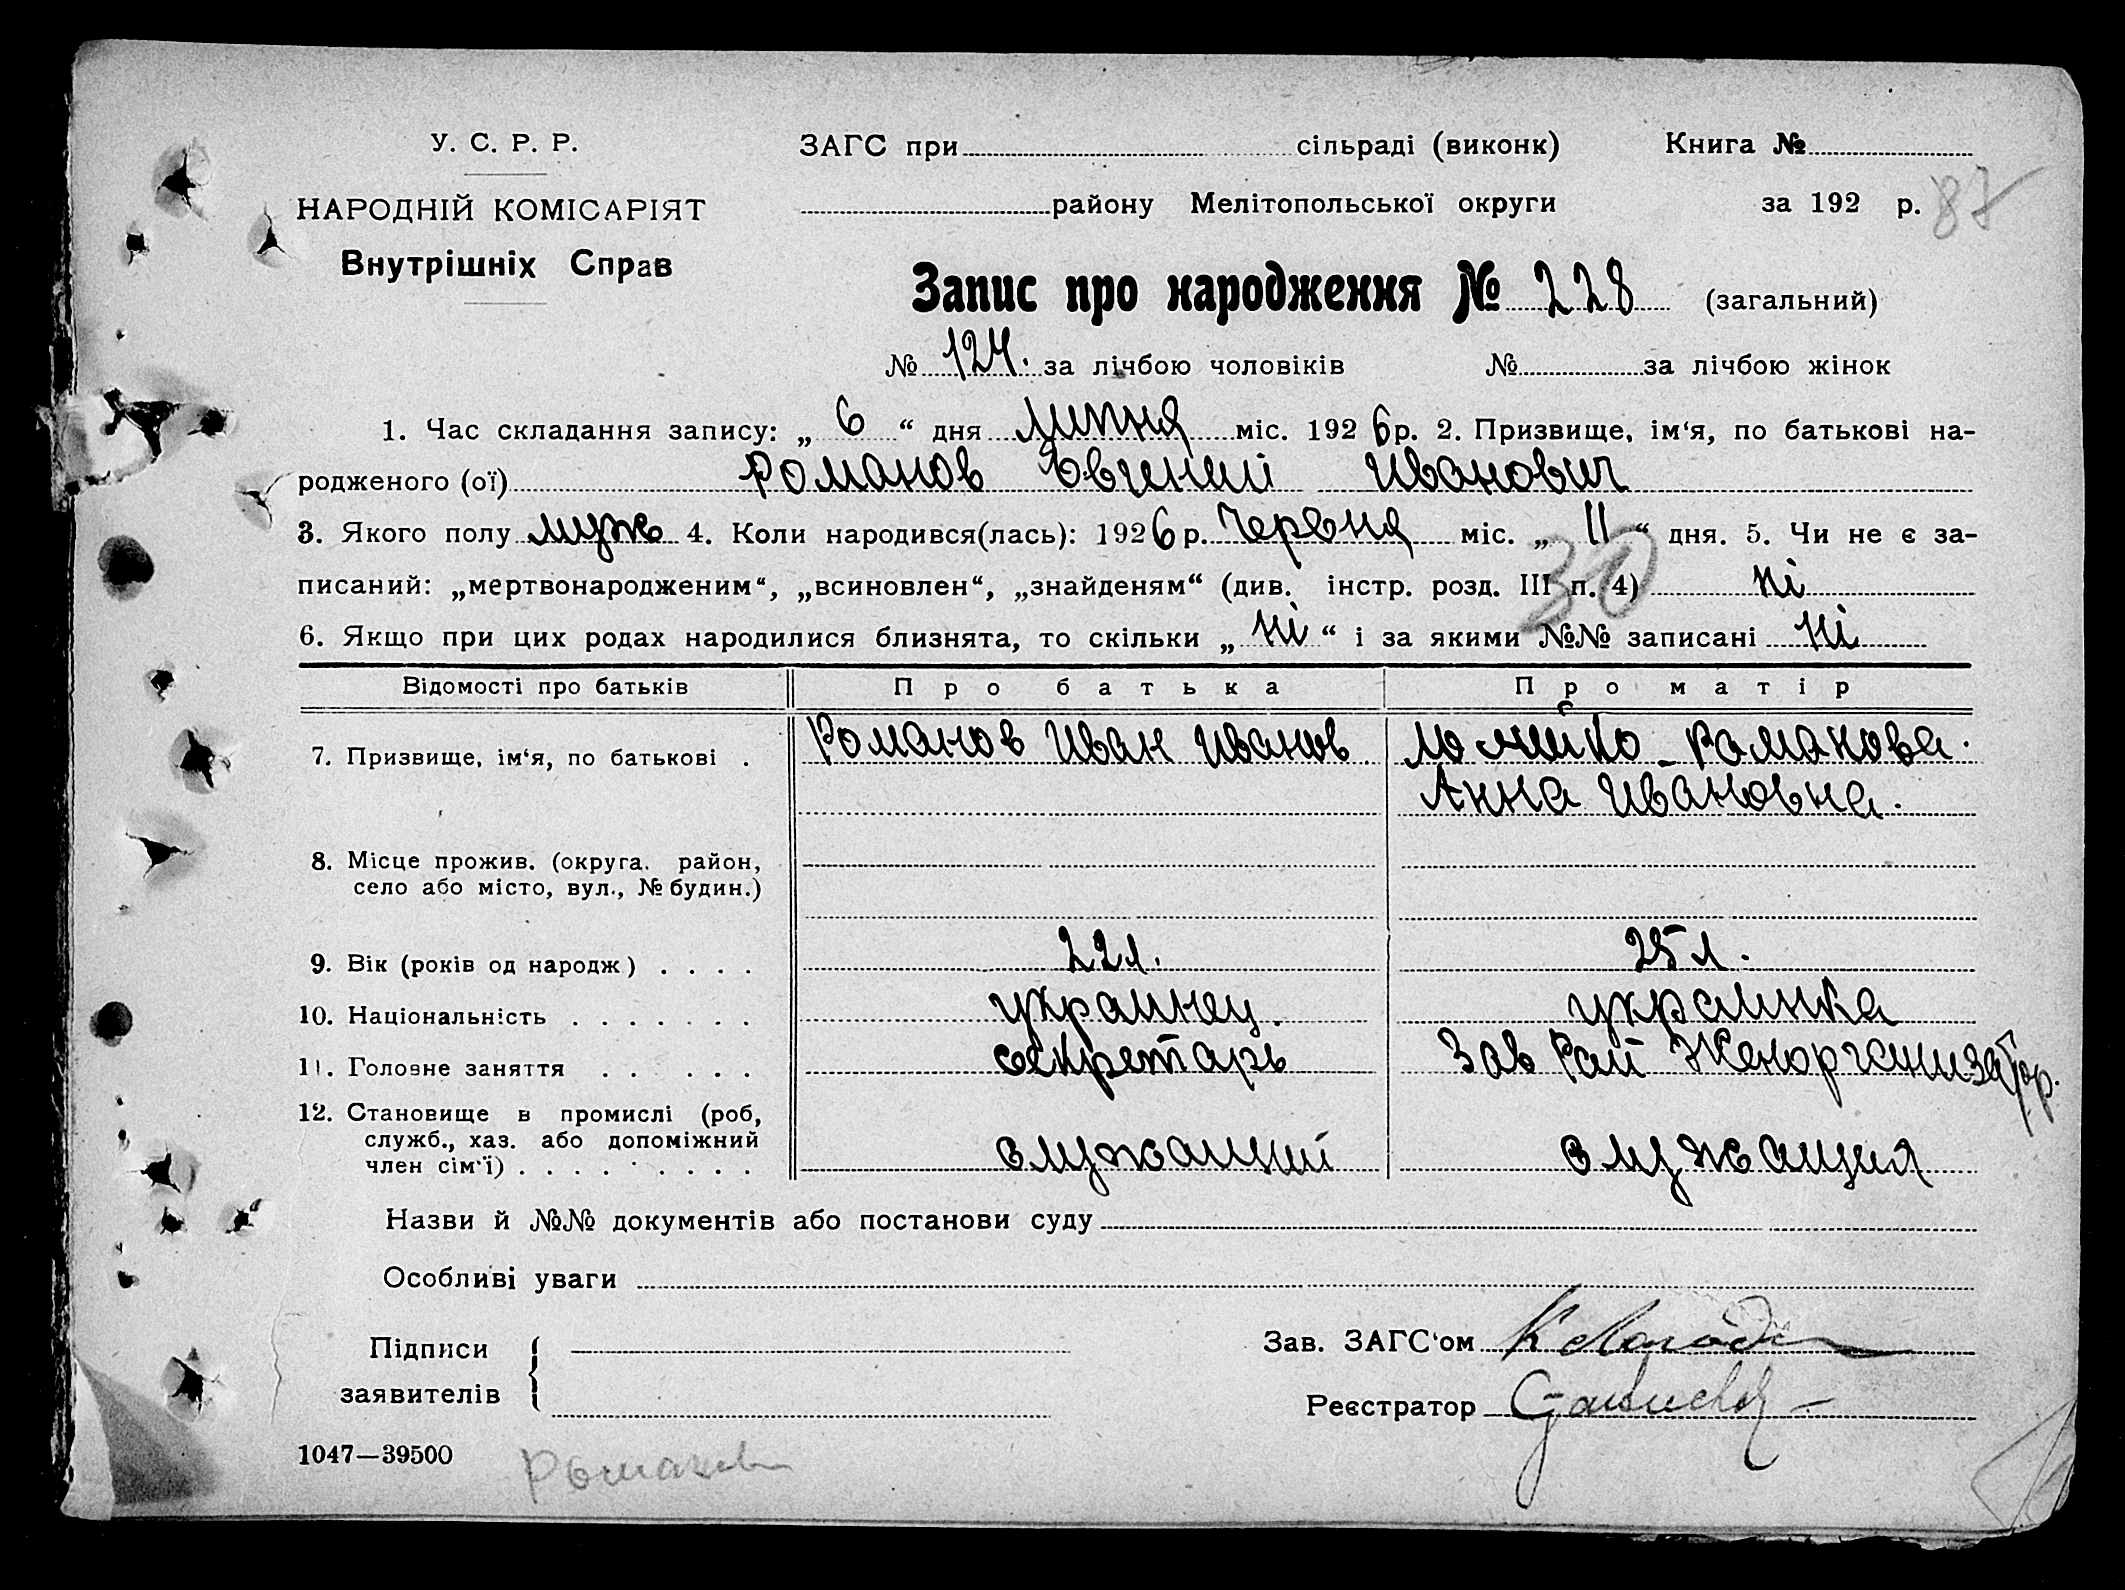 У. С. Р. Р.
ЗАГС при сільраді (виконк) Книга №
НАРОДНІЙ КОМІСАРІЯТ
району Мелітопольської округи за 192 р. 87
Внутрішніх Справ
Запис про народження № 228 (загальний)
№ 124. за лічбою чоловіків № за лічбою жінок
1. Час складання запису: „ 6 “ дня липня міс. 1926 р. 2. Призвище, ім‘я, по батькові на-
родженого (ої) Романов Евгений Иванович
3. Якого полу муж 4. Коли народився(лась): 1926 р. Червня міс. „ 11 “ дня. 5. Чи не є за-
30
писаний: „мертвонародженим“, „всиновлен“, „знайденям“ (див. інстр. розд. III п. 4) ні
6. Якщо при цих родах народилися близнята, то скільки „ ні “ і за якими №№ записані ні
Відомості про батьків Про батька Про матір
7. Призвище, ім‘я, по батькові . Романов Иван Иванов Романова.
Анна Ивановна.
8. Місце прожив. (округа. район,
село або місто, вул., № будин.)
9. Вік (років од народж) . . . . 22 л. 25 л.
10. Національність . . . . . . . украинец. украинка
11. Головне заняття . . . . . . секретарь Зав Рай Женорганизатор.
12. Становище в промислі (роб,
служб., хаз. або допоміжний
член сім‘ї) . . . . . . . . . служащий служащия
Назви й №№ документів або постанови суду
Особливі уваги
Підписи
заявителів
Зав. ЗАГС‘ом
Реєстратор
1047—39500 Романов